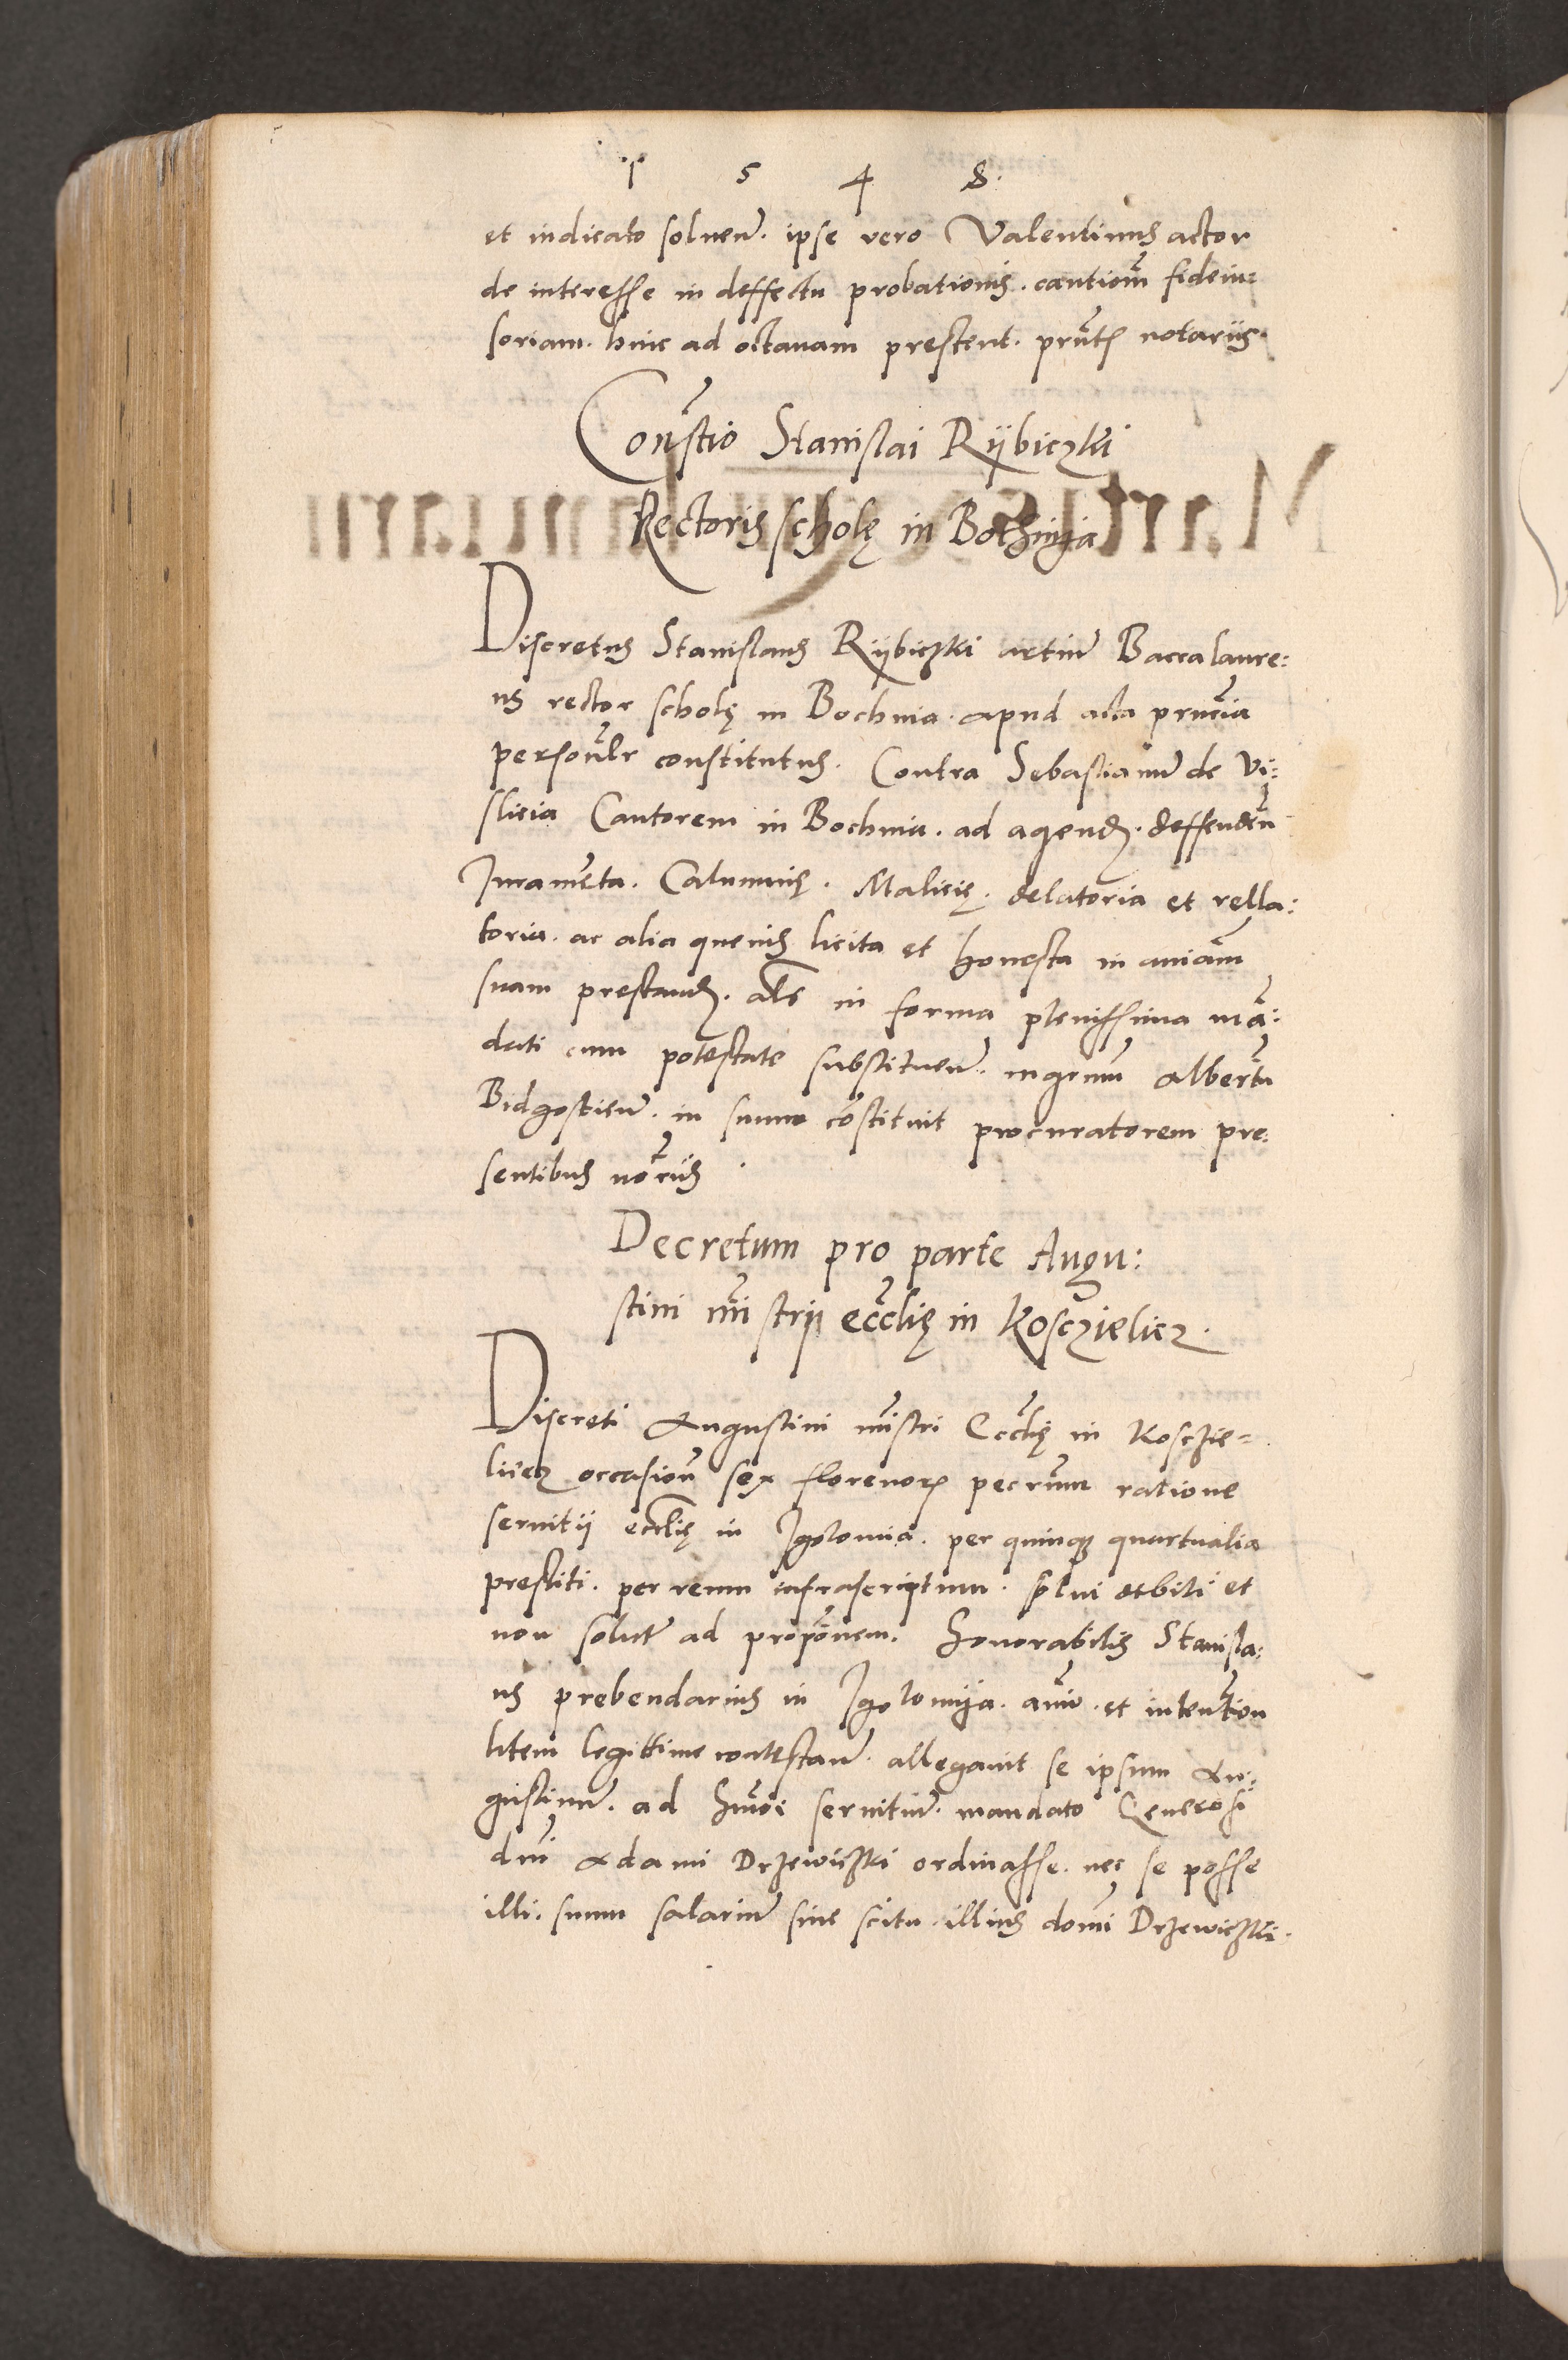 1 5 4 8.
et iudicato soluen̄. ipse vero Valentinus actor
de interesse in deffectu probationis. cautiom̄ fideiu=
soriam. hinc ad octauam prestent. pn̄tꝭ notariis.
Cons̄tio Stanislai Rÿbiczki
Rectoris scholę in Bochnÿa
Discretus Stanislaus Rÿbiczki artiū Baccalaure:
us rector scholę in Bochnia. apud acta pn̄cia
personlr̄ constitutus. Contra Sebastianū de Vi:
slicia Cantorem in Bochnia. ad agendꝭ. deffendēn
Iuramēta. Calumnię. Malicię. delatoria et rella:
toria. ac alia queuis licita et honesta in aniām
suam prestandꝭ. als̄ in forma plenissima mā:
dati cum potestate substituen̄. ingenuū Albertū
Bidgostien̄. in suum cōstituit procuratorem pre:
sentibus not̄riis.
Decretum pro parte Augu:
stini mi̅strii eccl̄ię in Kosczielicz.
Discreti Augustini mi̅stri Eccl̄ię in Kosczie=
licz occasiōn sex florenorꝭ pecn̄um ratione
seruitii eccl̄ię in Igolomia. per quinqꝫ quartualia
prestiti. per reum infrascriptum. sibi debiti et
non solutꝭ ad propōnem. Honorabilis Stanisla:
us prebendarius in Igolomÿa. aīo. et intentiōn
litem legittime contestan̄. allegauit se ipsum Au:
gustinū. ad hm̄oi seruitiū. mandato Generosi
dnī Adami Drzewiczki ordinasse. nec se posse
illi. suum salariū sine scitu. illius domī Drzewiczki.
Martis Ianuarii